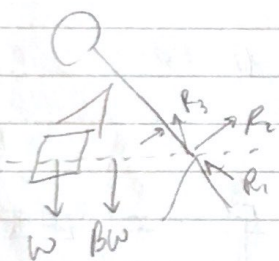 R3
R2
R1
W BW